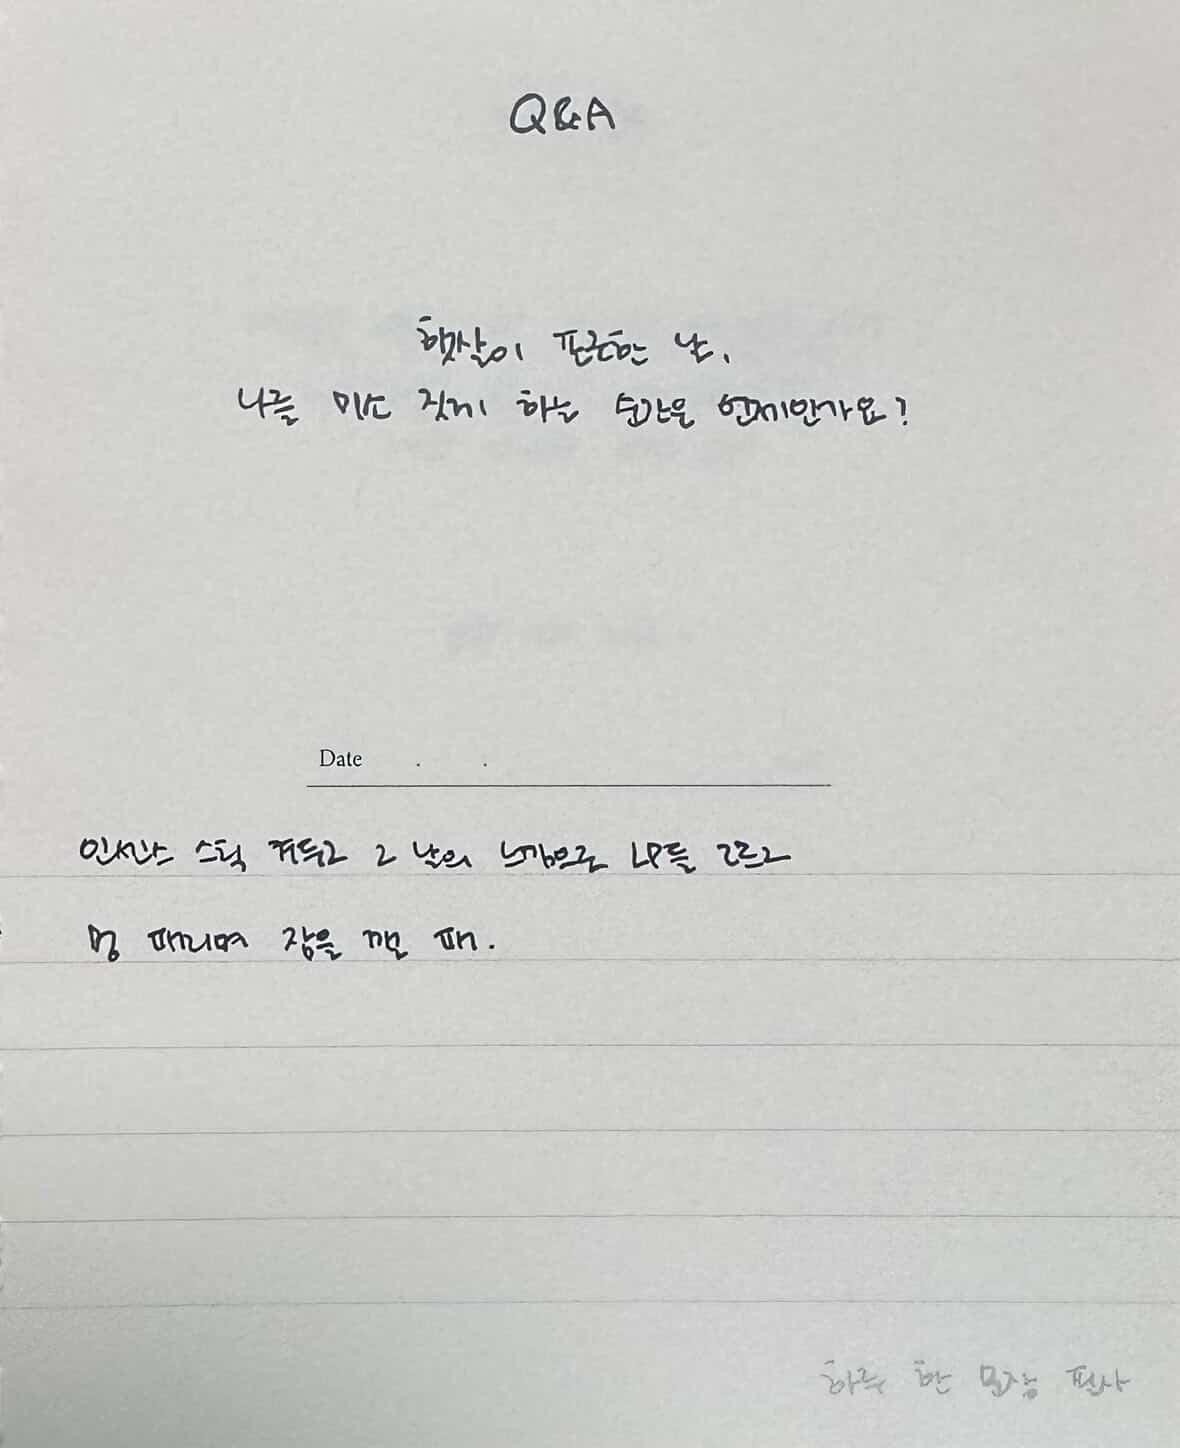 Q&A
햇살이 포근한 날,
나를 미소 짓게 하는 순간은 언제인가요?
Date . .
인센스 스틱 켜두고 그 날의 느낌으로 LP를 고르고
멍 때리며 잠을 깨울 때.
하루 한 문장 필사